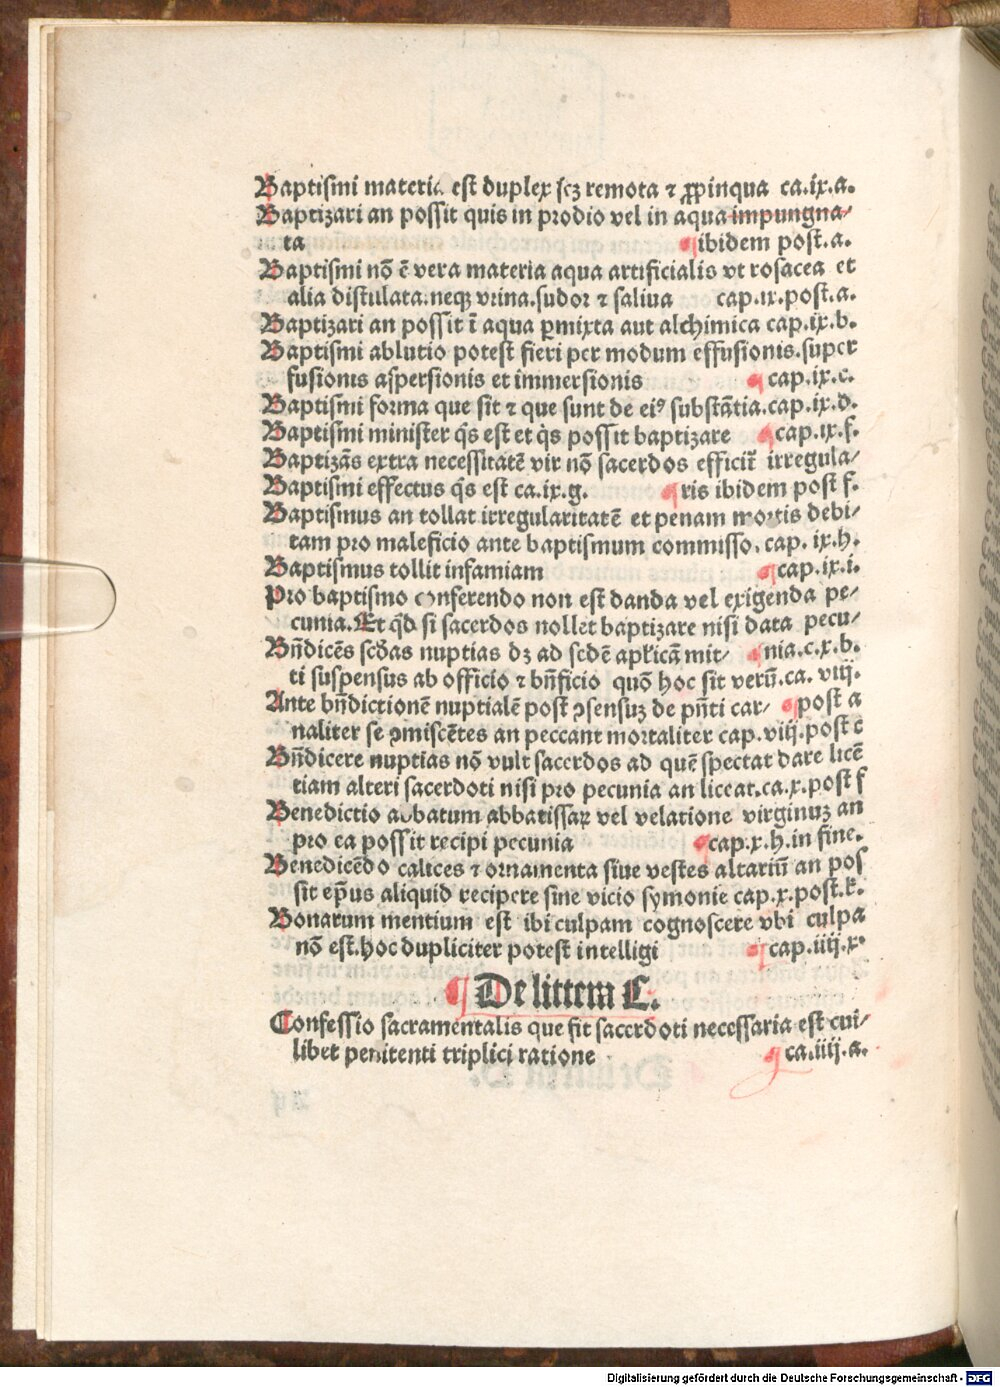 Baptismi materia est duplex scꝫ remota ⁊ ꝓpinqua ca.ix.a.
Baptizari an possit quis in prodio vel in aqua impungna⸗
ta ¶ibidem post.a.
Baptismi nō ē vera materia aqua artificialis vt rosacea et
alia distulata.neqꝫ vrina.sudor ⁊ saliua cap.ix.post.a.
Baptizari an possit ī aqua ꝑmixta aut alchimica cap.ix.b.
Baptismi ablutio potest fieri per modum effusionis.super
fusionis aspersionis et immersionis ¶cap.ix.c.
Baptismi forma que sit ⁊ que sunt de eiꝰ substātia.cap.ix.d.
Baptismi minister q̄s est et q̇s possit baptizare ¶cap.ix.f.
Baptizās extra necessitatē vir nō sacerdos efficit̄ irregula⸗
Baptismi effectus q̄s est ca.ix.g. ¶ris ibidem post f.
Baptismus an tollat irregularitatē et penam mortis debi⸗
tam pro maleficio ante baptismum commisso. cap. ix.h.
Baptismus tollit infamiam ¶cap.ix.i.
Pro baptismo conferendo non est danda vel exigenda pe⸗
cunia.Et q̄d si sacerdos nollet baptizare nisi data pecu⸗
Bn̄dicēs scd̄as nuptias dꝫ ad sedē apl̄icā mit⸗ ¶nia.c.x.b.
ti suspensus ab officio ⁊ bn̄ficio quō hoc sit verū.ca. viij.
Ante bn̄dictionē nuptialē post ꝯsensuꝫ de pn̄ti car⸗ ¶post a
naliter se ꝯmiscētes an peccant mortaliter cap.viij.post c
Bn̄dicere nuptias nō vult sacerdos ad quē spectat dare licē
tiam alteri sacerdoti nisi pro pecunia an liceat.ca.x.post f
Benedictio abbatum abbatissaꝝ vel velatione virginuꝫ an
pro ea possit recipi pecunia ¶cap.x.h.in fine.
Benedicēdo calices ⁊ ornamenta siue vestes altariū an pos
sit ep̄us aliquid recipere sine vicio symonie cap.x.post.k.
Bonarum mentium est ibi culpam cognoscere vbi culpa
nō est.hoc dupliciter potest intelligi ¶cap.iiij.x.
¶ De littem C.
Confessio sacramentalis que fit sacerdoti necessaria est cui⸗
libet penitenti triplici ratione ¶ca.iiij.a.
Digitalisierung gefördert durch die Deutsche Forschungsgemeinschaft - DFG